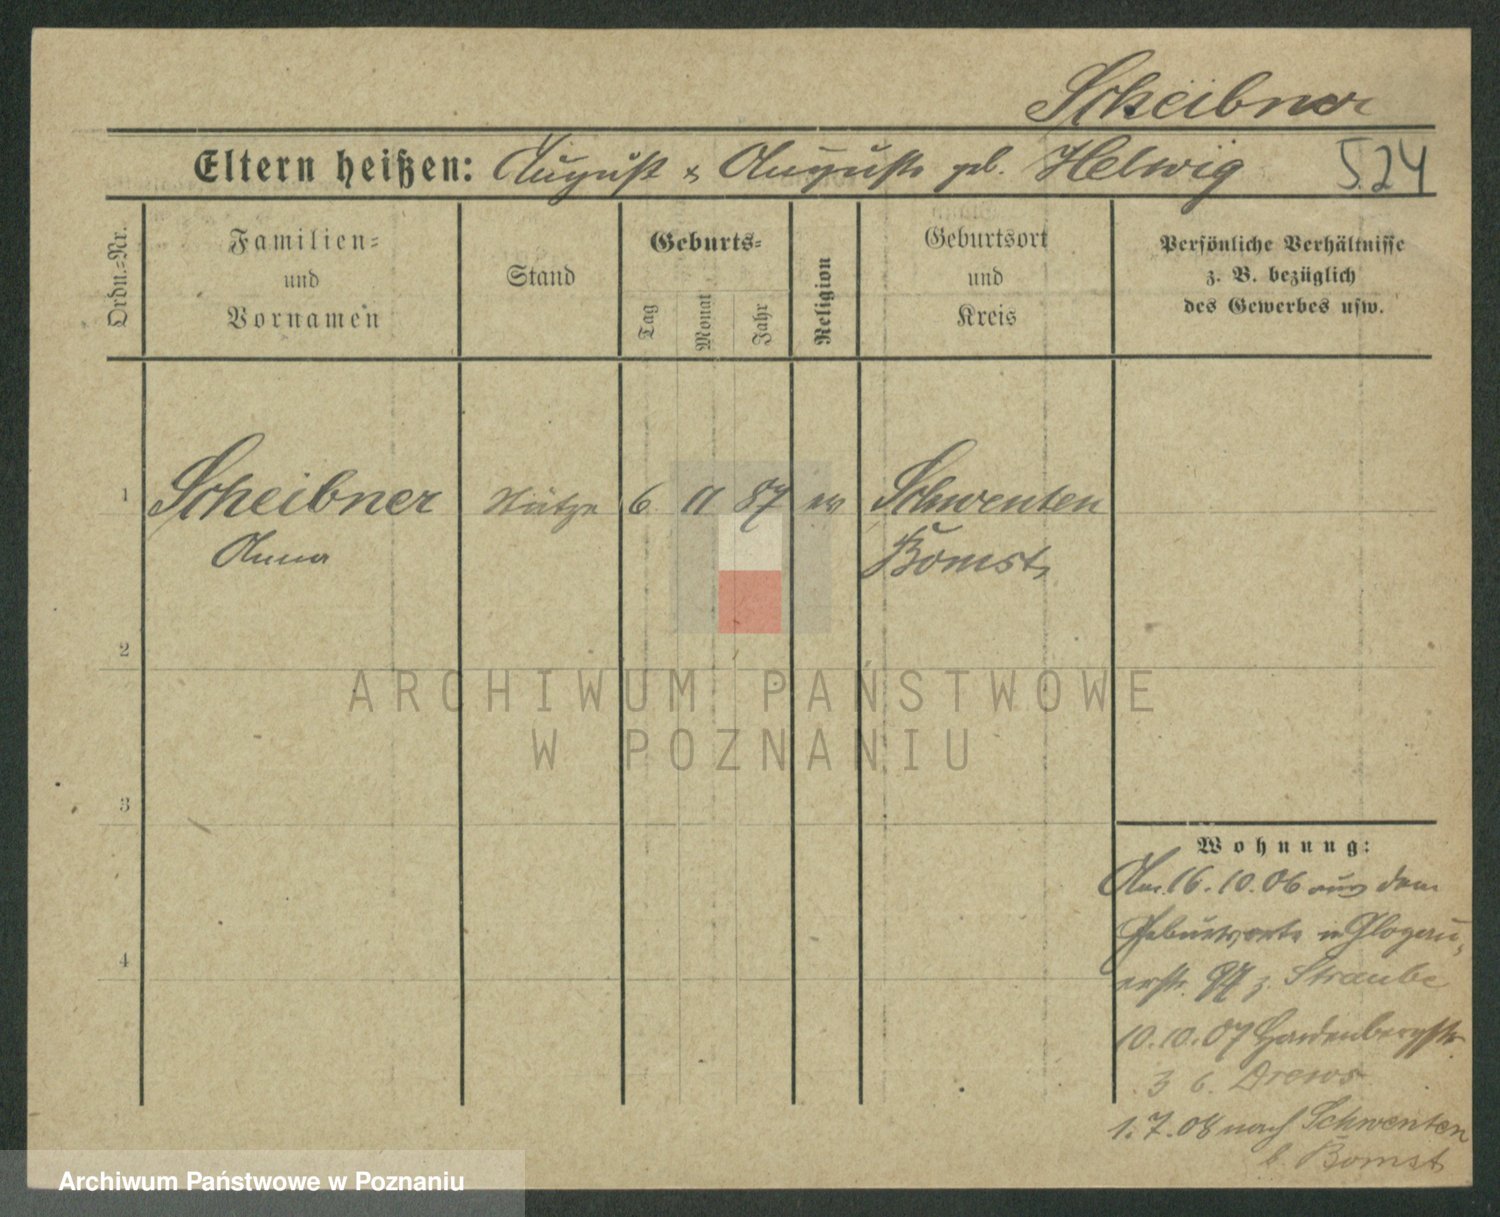 Scheibner
Eltern heißen: August & Auguste geb. Helwig 524
Ordn.-Nr.
Familien-
und
Vornamen
Stand
Geburts-
Tag
Monat
Jahr
Religion
Geburtsort
und
Kreis
Persönliche Verhältnisse
z. B. bezüglich
des Gewerbes usw.
1 Scheibner Stütze 6 11 87 ev Schwenten
Anna Bomst
2
ARCHIWUM PAŃSTWOWE
W POZNANIU
3
Wohnung:
Am 16.10.06 aus dem
Geburtsorte in Glogau-
erstr. 97 z. Straube
10.10.07 Hardenbergstr.
3 b. Drews
1.7.08 nach Schwenten
b. Bomst
4
Archiwum Państwowe w Poznaniu